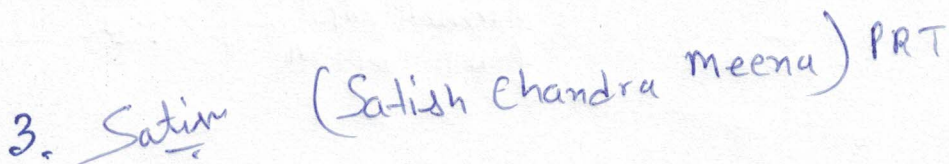 3. Satish (Satish Chandra Meena) PRT